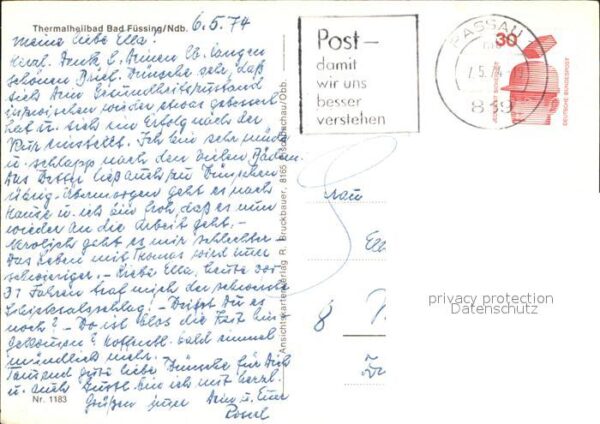 Thermalheilbad Bad Füssing/Ndb. 6.5.74
Meine liebe Ella!
Herzl. Dank f. Deinen lb. langen
schönen Brief. Wünsche sehr, daß
sich Dein Gesundheitszustand
inzwischen wieder etwas gebessert
hat u. sich ein Erfolg nach der
Kur einstellt. Ich bin sehr müde
u. schlapp nach den vielen Bädern.
Das Wetter ließ auch zu Wünschen
übrig. Übermorgen geht es nach
Hause u. ich bin froh, daß es nun
wieder an die Arbeit geht. -
geht es mir schlechter -
Das Leben mit Thomas wird immer
schwieriger. - Liebe Ella, heute vor
Jahren traf mich der schwerste
Schicksalsschlag! - Weißt Du es
noch? - Wo ist bloß die Zeit hin-
gekommen? Hoffentl. bald einmal
mündlich mehr.
Tausend gute liebe Wünsche für Dich
u. auch bin ich mit herzl.
Grüßen immer Dein u. Eure
Nr. 1183
Ansichtskartenverlag R. Bruckbauer, 8165 Fischbachau/Obb.
Post -
damit
wir uns
besser
verstehen
PASSAU
7.5.74
839
30
JEDERZEIT SICHERHEIT
DEUTSCHE BUNDESPOST
Frau
8
privacy protection
Datenschutz